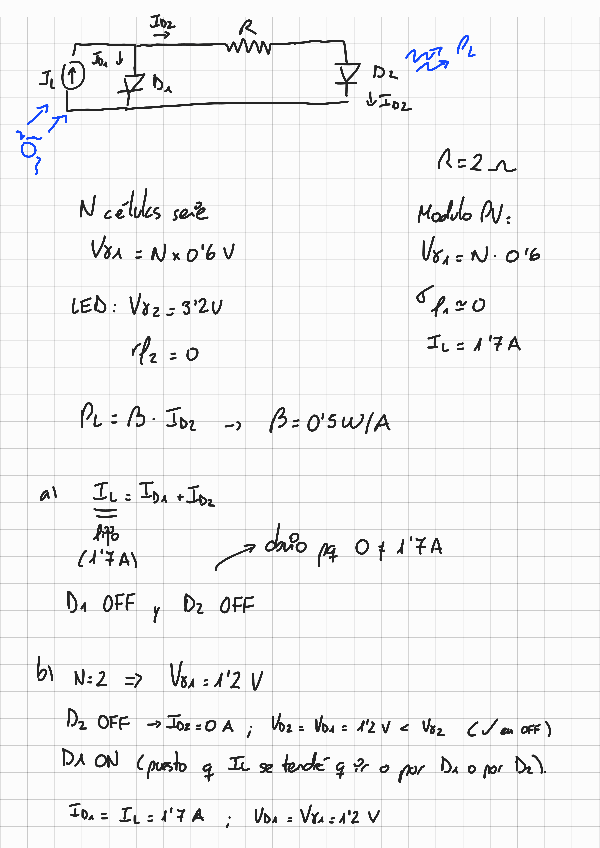 I_D2
R
I_L
I_D1
D1
D2
P_L
I_D2
R = 2 Ω
N células serie
Modulo PV:
Vγ1 = N x 0'6 V
Vγ1 = N · 0'6
LED: Vγ2 = 3'2 V
rf1 ≃ 0
rf2 = 0
I_L = 1'7 A
P_L = β · I_D2 → β = 0'5 W/A
a) I_L = I_D1 + I_D2
fijo
(1'7 A)
obvio pq 0 ≠ 1'7 A
D1 OFF y D2 OFF
b) N=2 => Vγ1 = 1'2 V
D2 OFF → I_D2 = 0 A ; V_D2 = V_D1 = 1'2 V < Vγ2 (✓ en OFF)
D1 ON (puesto q I_L se tendrá q ir o por D1 o por D2).
I_D1 = I_L = 1'7 A ; V_D1 = Vγ1 = 1'2 V